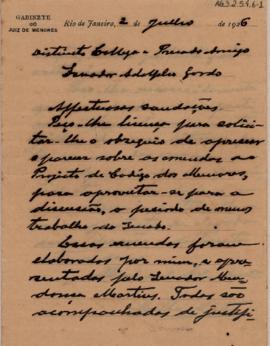 AG3.2.5.4.6-1
GABINETE
DO
JUIZ DE MENORES
Rio de Janeiro, 2 de Julho de 1926
Distincto Collega e Presado Amigo
Senador Adolpho Gordo
Affectuosas saudações.
Peço-lhe licença para solici-
tar-lhe o obsequio de apressar
o parecer sobre as emendas ao
Projecto de Codigo dos Menores,
para aproveitar-se para a
discussão, o periodo de menos
trabalho do Senado.
Essas emendas foram
elaboradas por mim, e apre-
sentadas pelo Senador Men-
donça Martins. Todas são
acompanhadas de justifi-